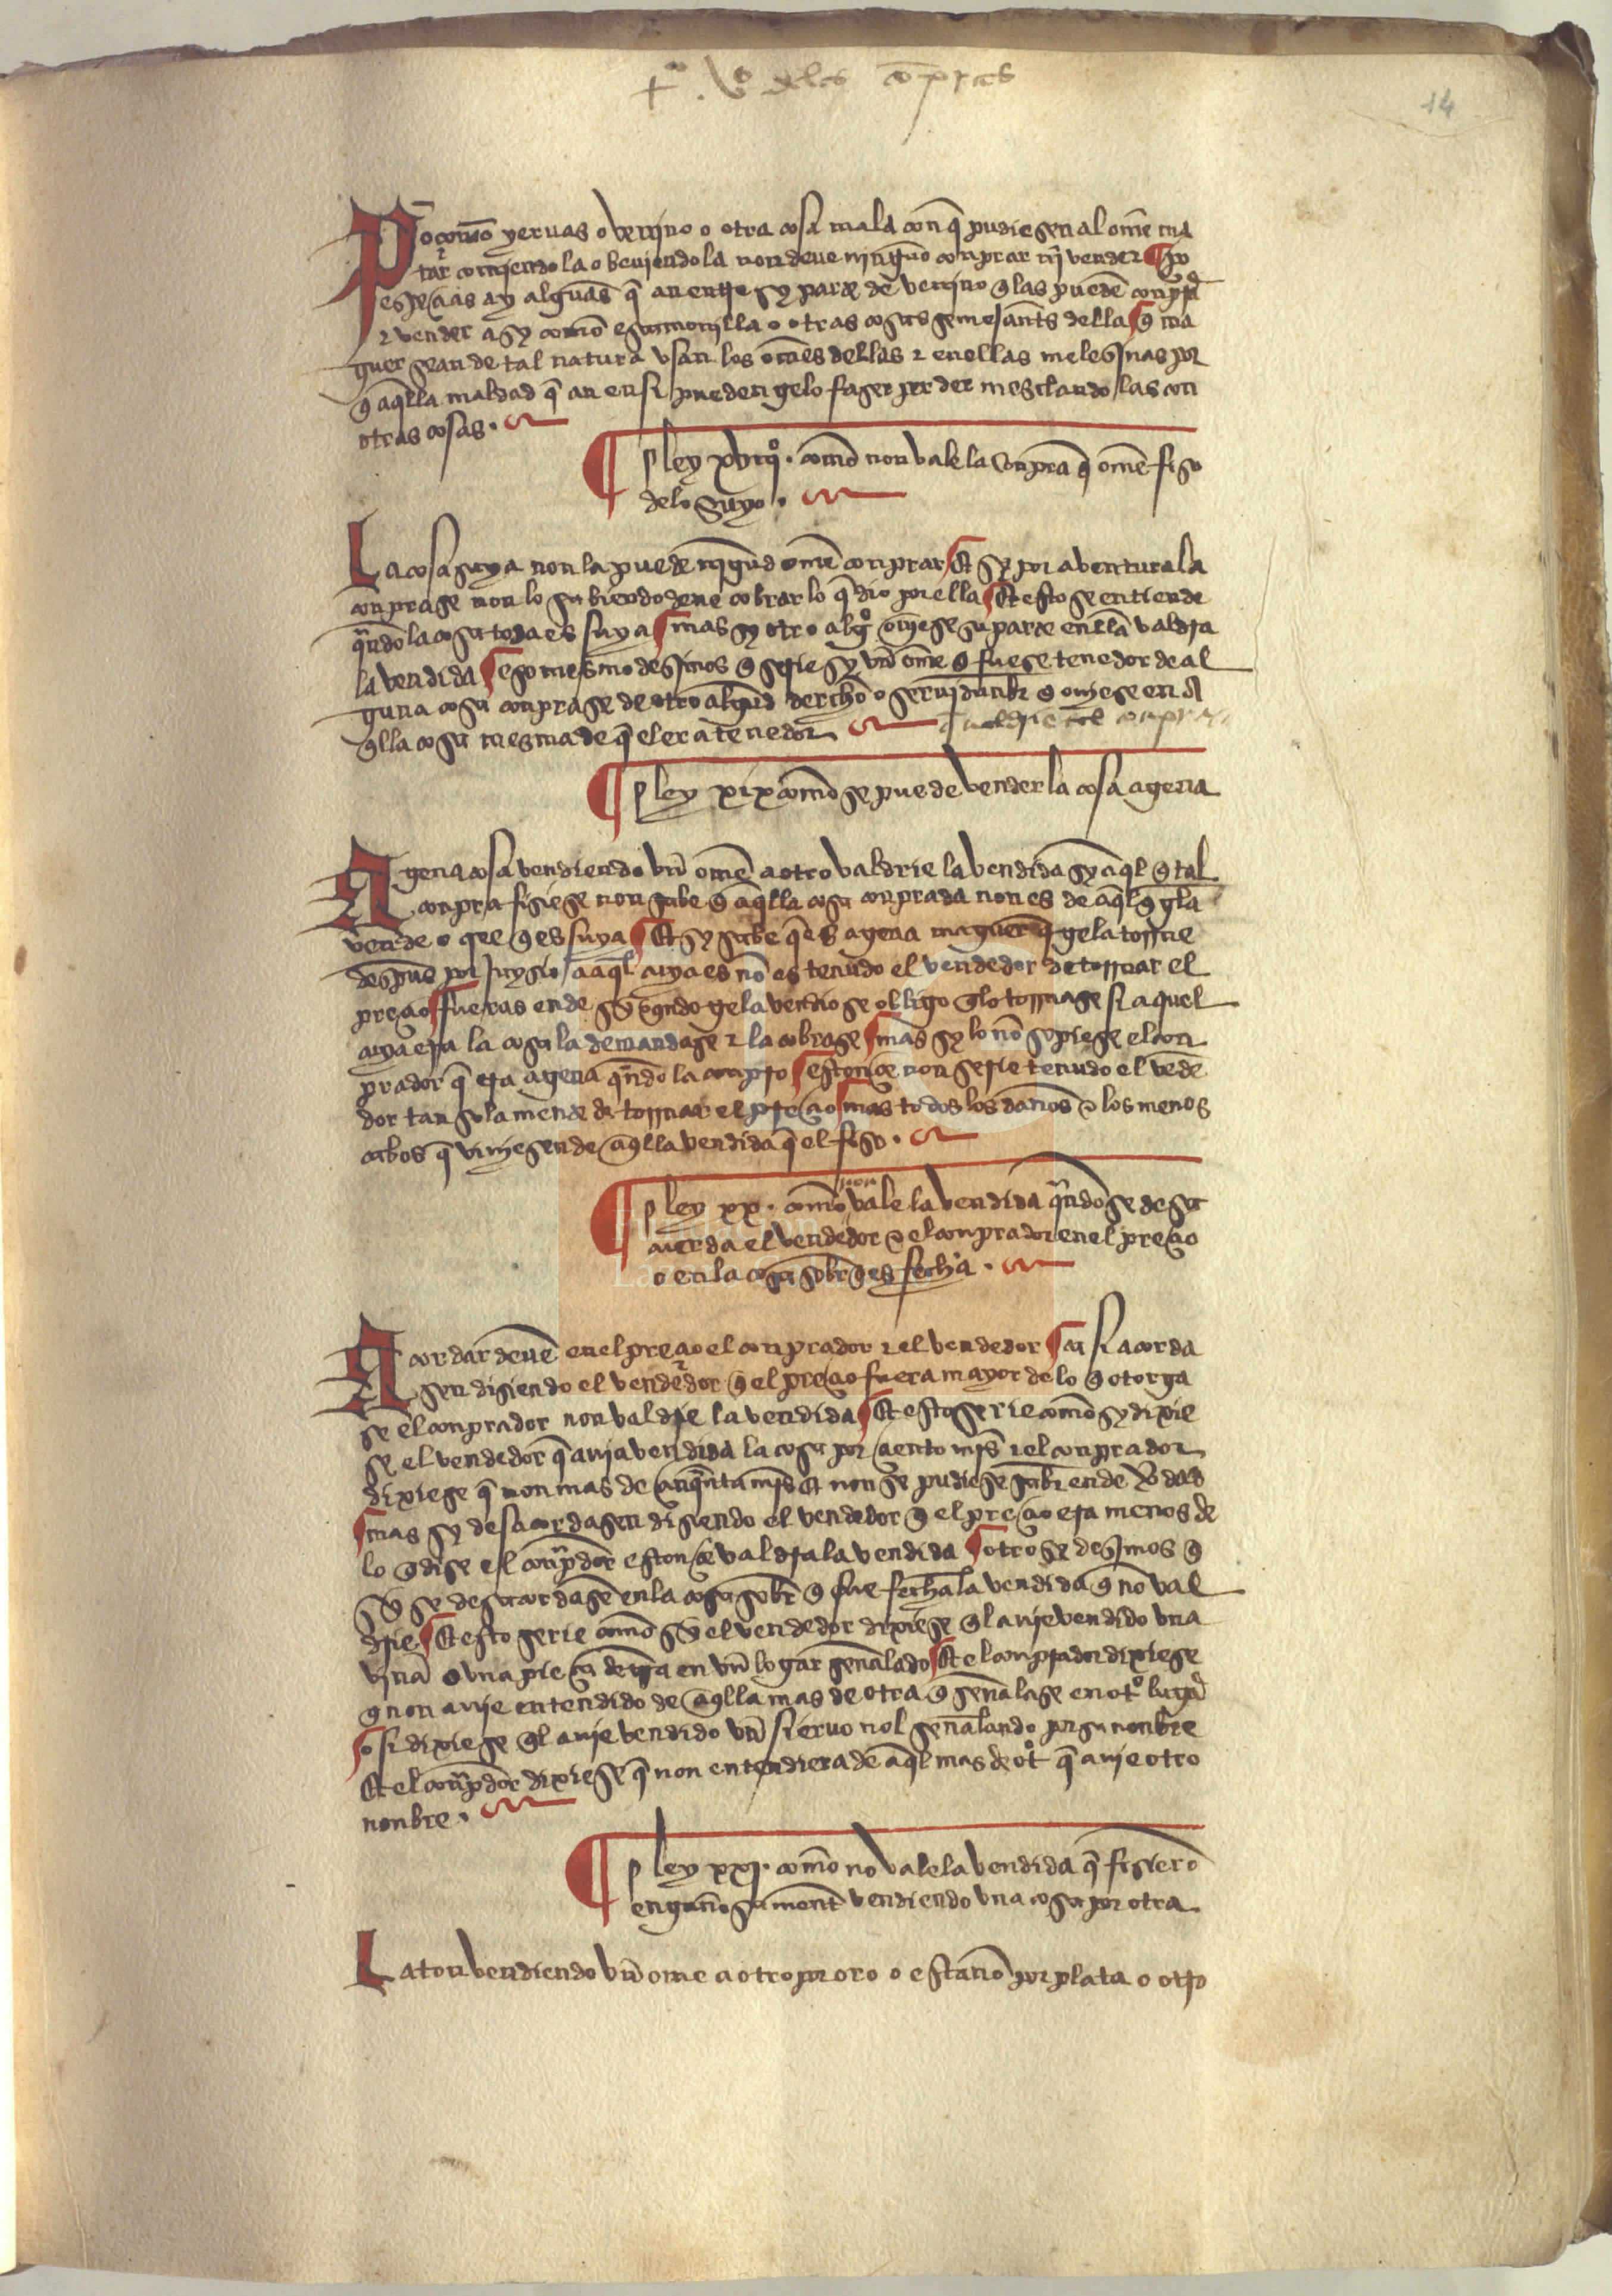 tº. vº delas conpras
14
Poçom̃o yeruas o venjno o otra cosa mala con q̃ pudiesen al om̃e ma
tar comjendola o beujendola non deue njnguno conprar nj̃ vender ¶ po
espeçias ay algunas q̃ an entre sy parte de venjno q̃ las pueden conprar
τ vender asy com̃o escamonjlla o otras cosas semejants della ¶ q̃ ma
guer sean de tal natura vsan los om̃es dellas τ en ellas melesjnas por
q̃ aq̃lla maldad q̃ an en si puedengelo faser perder mesclando las con
otras cosas.
¶ ley xviijº. com̃o non vale la conpra q̃ om̃e fiso
delo suyo.
La cosa suya non la puede njngud om̃e conprar ¶ Et sy por aventura la
conprase non lo sabiendo deue cobrar lo q̃ dio por ella ¶ Et esto se entiende
q̃ndo la cosa toda es suya ¶ mas sy otro algº oujese su parte en ella valdra
la vendida ¶ eso mesmo desjmos q̃ serie sy vñ om̃e q̃ fuese tenedor de al
guna cosa conprase de otro algud derecho o seruidunbr̃ q̃ oujese en a
q̃lla cosa mesma de q̃ el era tenedor
valdrie tal conpra
¶ ley xix com̃o se puede vender la cosa agena
Agena cosa vendiendo vñ om̃e a otro valdrie la vendida sy aq̃l q̃ tal
conpra fisiese non sabe q̃ aq̃lla cosa conprada non es de aq̃l q̃ gla
vende o cree q̃ es suya ¶ Et sy sabe q̃ es agena maguer q̃ gela torrne
despues por juysio a aq̃l cuya es nõ es tenudo el vendedor de torrnar el
preçio ¶ fueras ende sy q̃ndo gela vendio se obligo q̃ lo torrnase si aquel
cuya era la cosa la demandase τ la cobrase ¶ mas sy lo nõ sopiese el con
prador q̃ era agena q̃ndo la conpro ¶ estonçe non serie tenudo el vẽde
dor tan sola mente de torrnar el preçio mas todos los daños τ los menos
cabos q̃ vinjesen de aq̃lla vendida q̃ el fiso.
¶ ley xx. com̃o non vale la vendida q̃ndo se desa
cuerda el vendedor τ el conprador en el preçio
o en la cosa sobr̃ q̃ es fecha.
Acordar deuẽ en el preçio el conprador τ el vendedor ¶ ca si acorda
sen disiendo el vendedor q̃ el preçio fuera mayor de lo q̃ otorga
se el conprador non valdrie la vendida ¶ Et esto serie com̃o sy dixie
se el vendedor q̃ auja vendida la cosa por çiento mr̃s τ el conprador
dixiese q̃ non mas de çinq̃nta mr̃s Et non se pudiese sabr̃ ende verdad
¶ mas sy desacordasen disiendo el vendedor q̃ el preçio era menos de
lo q̃ dise el conp̃dor estonçe valdra la vendida ¶ otrosy desjmos q̃
sy se desacordasẽ en la cosa sobr̃ q̃ fue fecha la vendida q̃ nõ val
drie ¶ Et esto serie com̃o sy el vendedor dixiese q̃l auje vendido vna
vjña o vna pieça de tr̃ra en vñ logar señalado ¶ Et el conprador dixiese
q̃ non auje entendido de aq̃lla mas de otra q̃ señalase en otº lugar
¶ o si dixiese q̃l auje vendido vñ sieruo nol señalando por su nonbre
Et el conp̃dor dixiese q̃ non entendiera de aq̃l mas de otº q̃ auje otro
nonbre.
¶ ley xxj. com̃o no vale la vendida q̃ fisierõ
engañosament̃ vendiendo vna cosa por otra
Laton vendiendo vñ ome a otro por oro o estaño por plata o otro